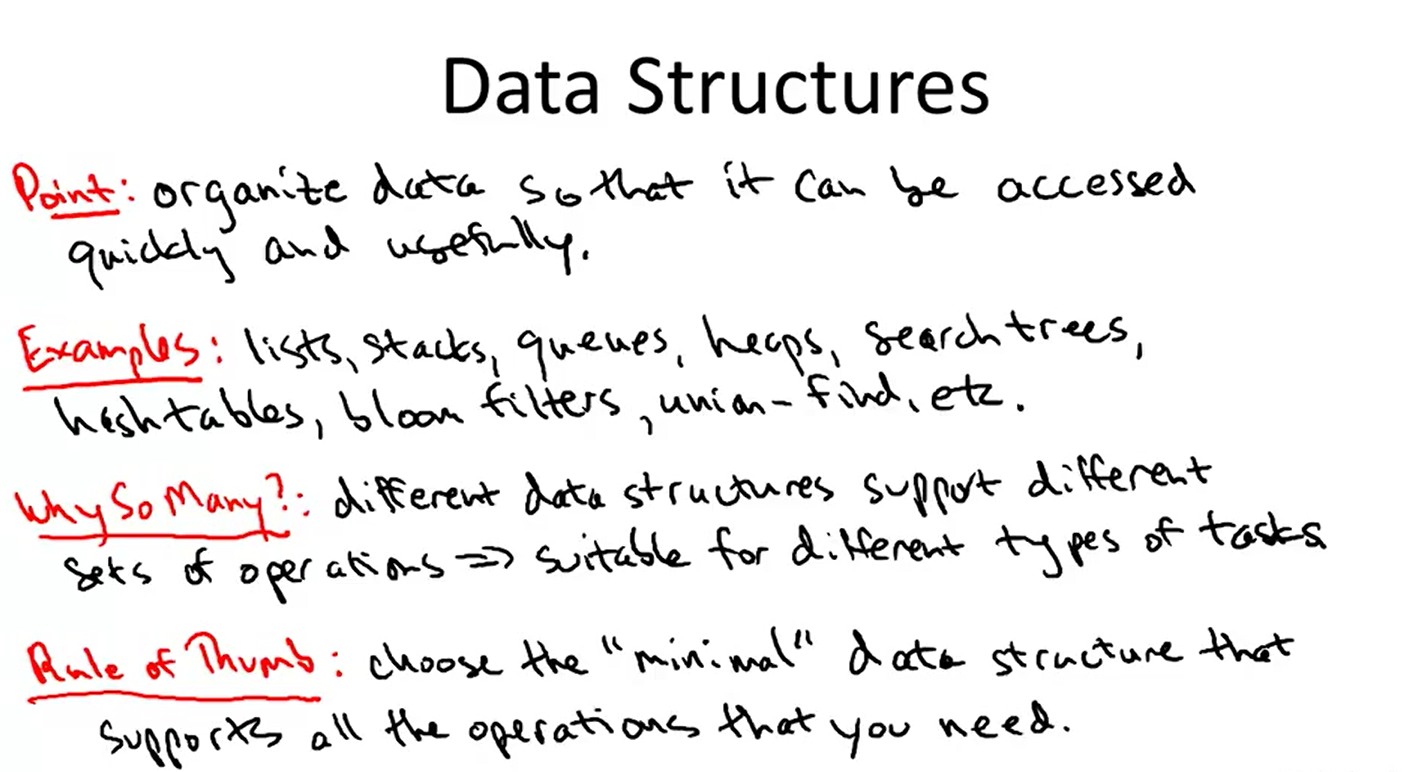 Data Structures
Point: organize data so that it can be accessed
quickly and usefully.
Examples: lists, stacks, queues, heaps, search trees,
hashtables, bloom filters, union-find, etc.
Why So Many?: different data structures support different
sets of operations => suitable for different types of tasks
Rule of Thumb: choose the "minimal" data structure that
supports all the operations that you need.